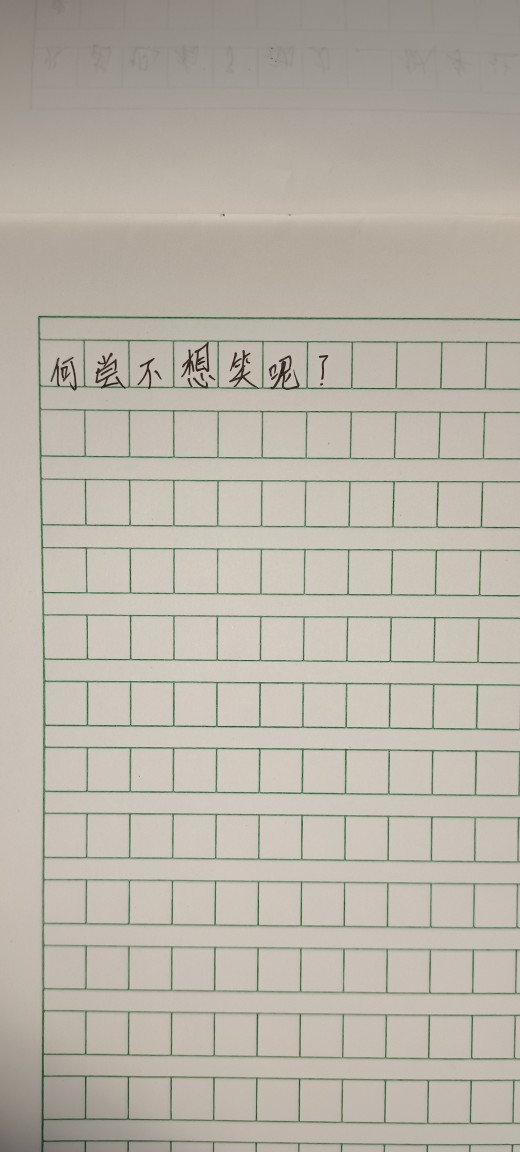 何尝不想笑呢？